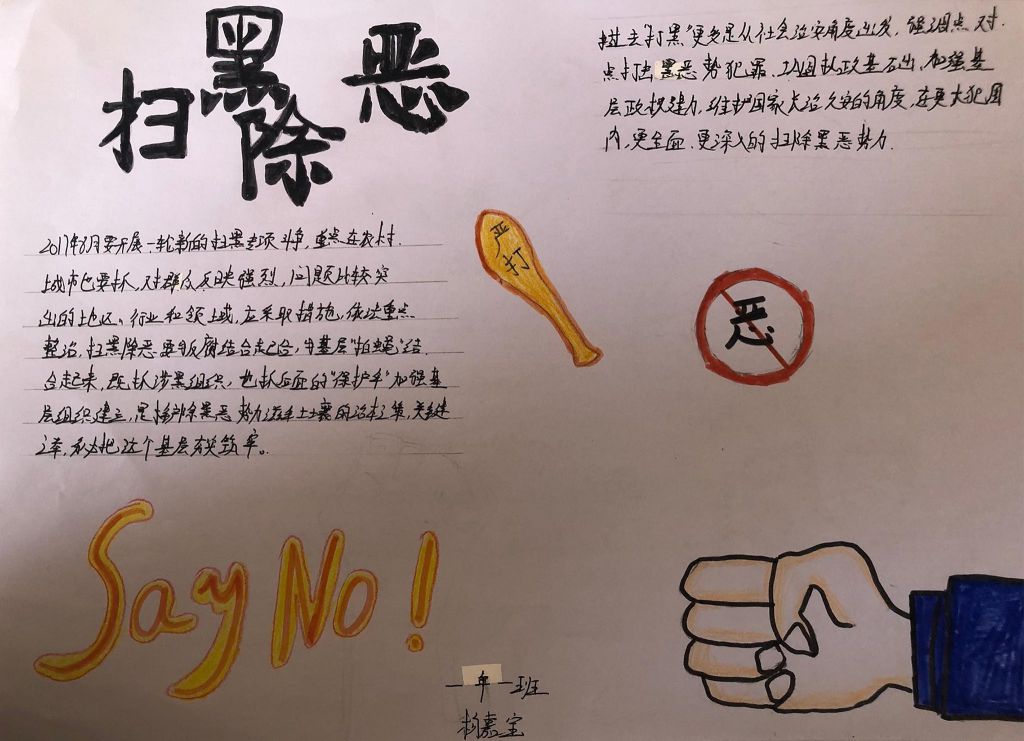 扫黑除恶
过去"打黑"更多是从社会治安角度出发，强调点对.
点打击黑恶势犯罪、巩固执政基石出，加强基
层政权建力，维护国家大治久安的角度，在更大犯围
内，更全面.更深入的扫除黑恶势力.
2017年8月要开展一轮新的扫黑专项斗争，重点在农村.
城市也要抓，对群众反映强烈，问题比较突
出的地区、行业和领土或，应采取措施，依法重点
整治，扫黑除恶要与反腐结合起合，与基层"拍蝇"结.
合起来，既抓涉黑组织，也抓后面的"保护伞"加强基
层组织建立，是铲除黑恶势力滋生土壤的治本之策，关键
之率，必把这个基层夯筑牢。
严打
恶
Say No!
一年一班
杨嘉宝